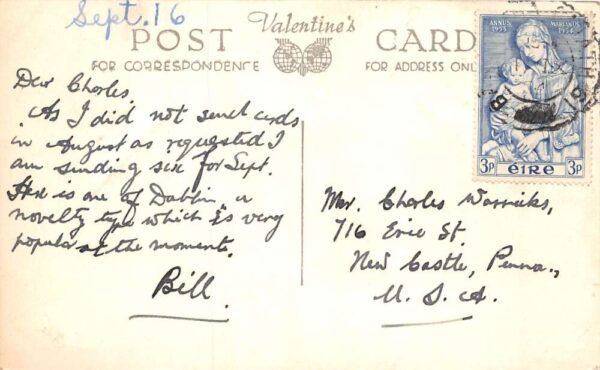 Sept. 16
Valentine's
POST CARD
FOR CORRESPONDENCE
FOR ADDRESS ONLY
Dear Charles,
As I did not send cards
in August as requested I
am sending six for Sept.
Here is one of Dublin, a
novelty type which is very
popular at the moment.
Bill
ANNUS MARIANUS
1953 1954
3p ÉIRE 3p
Mr. Charles Warnicks,
716 Erie St.
New Castle, Penna.,
U. S. A.